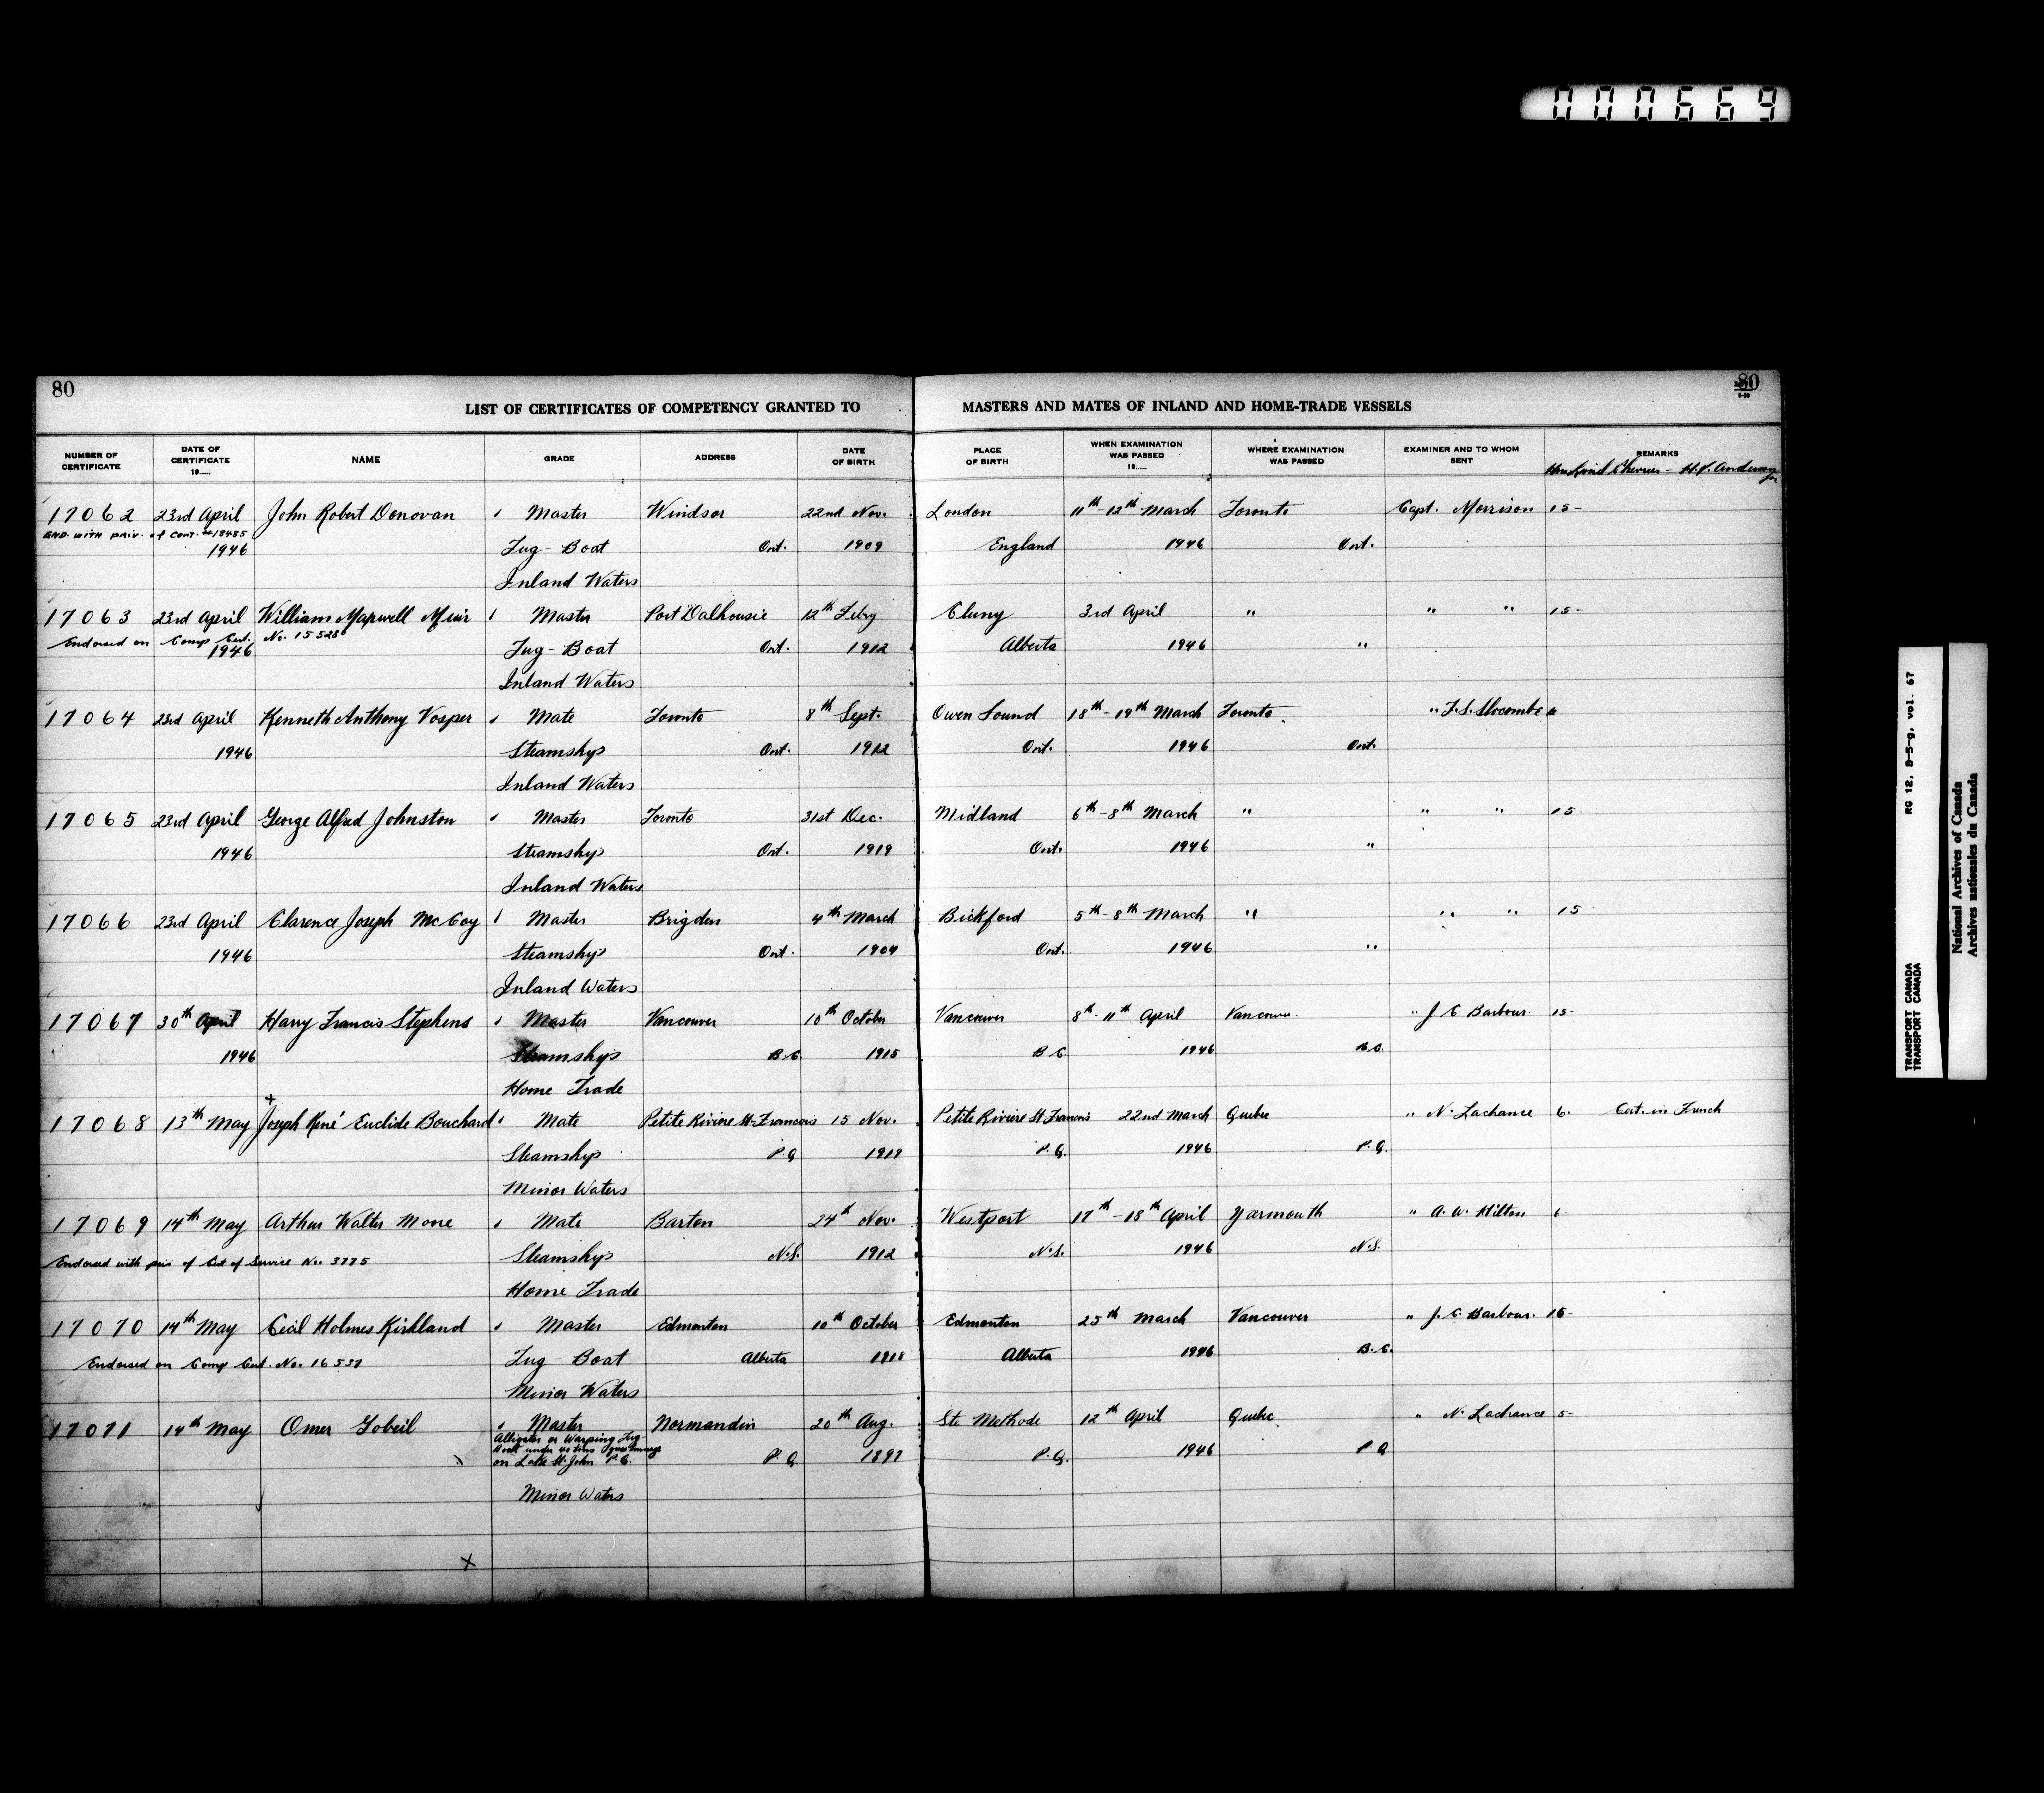 000669
80
80
LIST OF CERTIFICATES OF COMPETENCY GRANTED TO MASTERS AND MATES OF INLAND AND HOME-TRADE VESSELS
NUMBER OF CERTIFICATE DATE OF CERTIFICATE 19..... NAME GRADE ADDRESS DATE OF BIRTH PLACE OF BIRTH WHEN EXAMINATION WAS PASSED 19..... WHERE EXAMINATION WAS PASSED EXAMINER AND TO WHOM SENT REMARKS
17062 23rd April John Robert Donovan Master Windsor 22nd Nov. London 11th-12th March Toronto Capt. Morrison 15-
END. WITH PRIV. of Cert. 18485
1946 Tug-Boat Ont. 1909 England 1946 Ont.
Inland Waters
17063 23rd April William Maxwell Muir Master Port Dalhousie 12th Feby Cluny 3rd April " " " 15-
Endorsed on Comp Cert. No. 15528
1946 Tug-Boat Ont. 1912 Alberta 1946 "
Inland Waters
17064 23rd April Kenneth Anthony Vosper Mate Toronto 8th Sept. Owen Sound 18th-19th March Toronto " F.S. Slocombe
1946 Steamships Ont. 1912 Ont. 1946 Ont.
Inland Waters
17065 23rd April George Alfred Johnston Master Toronto 31st Dec. Midland 6th-8th March " " " 15
1946 Steamships Ont. 1919 Ont. 1946 "
Inland Waters
17066 23rd April Clarence Joseph McCoy Master Brigden 4th March Bickford 5th-8th March " " " 15
1946 Steamships Ont. 1904 Ont. 1946 "
Inland Waters
17067 30th April Harry Francis Stephens Master Vancouver 10th October Vancouver 8th-11th April Vancouver " J C Barbour 15-
1946 Steamships B.C. 1915 B C 1946 B.C.
Home Trade
17068 13th May Joseph René Euclide Bouchard Mate Petite Riviere St-Francois 15 Nov. Petite Riviere St Francois 22nd March Quebec " N. Lachance 6. Cert. in French
Steamships P.Q 1919 P.Q. 1946 P.Q.
Minor Waters
17069 14th May Arthur Walter Moore Mate Barton 24th Nov. Westport 17th-18th April Yarmouth " A. W. Hilton 6
Endorsed with priv of Cert of Service No. 3775 Steamships N.S. 1912 N.S. 1946 N.S.
Home Trade
17070 14th May Cecil Holmes Kirkland Master Edmonton 10th October Edmonton 25th March Vancouver " J. C. Barbour. 15-
Endorsed on Comp Cert. No. 16537 Tug-Boat Alberta 1918 Alberta 1946 B.C.
Minor Waters
17071 14th May Omer Gobeil Master Normandin 20th Aug. Ste Methode 12th April Quebec " N. Lachance 5-
Alligator or Warping Tug-
Boat under
on Lake St. John P.Q. P.Q 1897 P.Q. 1946 P Q
Minor Waters
TRANSPORT CANADA RG 12, B-5-g, vol. 67
TRANSPORT CANADA
National Archives of Canada
Archives nationales du Canada